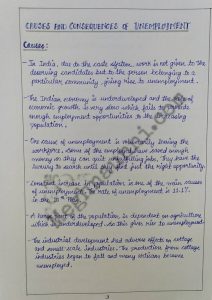 CAUSES AND CONSEQUENCES OF UNEMPLOYMENT
Causes:
- In India, due to the caste system, work is not given to the
deserving candidates but to the person belonging to a
particular community, giving rise to unemployment.
- The Indian economy is underdeveloped and the role of
economic growth is very less which fails to provide
enough employment opportunities to the increasing
population.
- One cause of unemployment is voluntarily leaving the
workforce. Some of the employees have saved enough
money so they can quit unfulfilling jobs. They have the
luxury to search until they find just the right opportunity.
- Constant increase in population is one of the main causes
of unemployment. The rate of unemployment is 11.1%
in the
- A large part of the population is dependent on agriculture
which is underdeveloped. So this gives rise to unemployment.
- The industrial development had adverse effects on cottage
and small scale industries. The production from cottage
industries began to fall and many artisans became
unemployed.